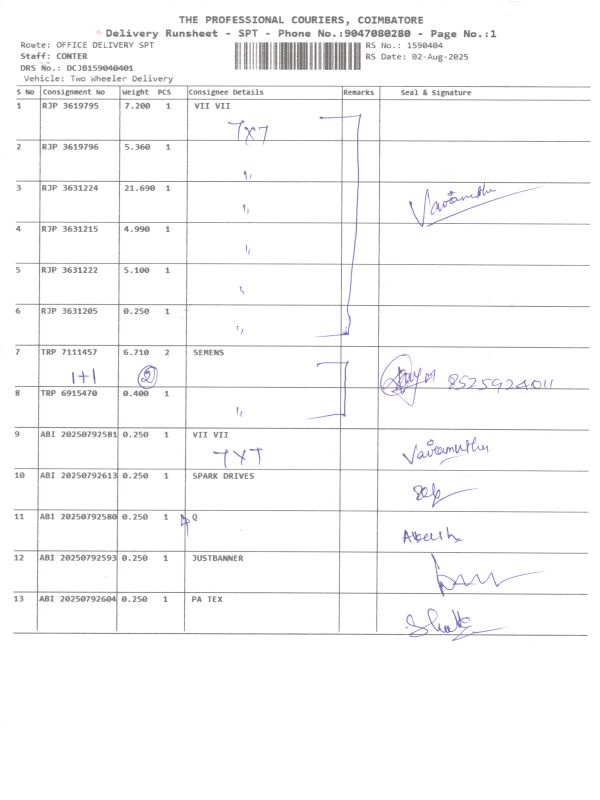 THE PROFESSIONAL COURIERS, COIMBATORE
Delivery Runsheet - SPT - Phone No.:9047080280 - Page No.:1
Route: OFFICE DELIVERY SPT
RS No.: 1590404
Staff: CONTER
RS Date: 02-Aug-2025
DRS No.: DCJB159040401
Vehicle: Two Wheeler Delivery
S No Consignment No Weight PCS Consignee Details Remarks Seal & Signature
1 RJP 3619795 7.200 1 VII VII
7X7
2 RJP 3619796 5.360 1
3 RJP 3631224 21.690 1
4 RJP 3631215 4.990 1
5 RJP 3631222 5.100 1
6 RJP 3631205 0.250 1
7 TRP 7111457 6.710 2 SEMENS
1+1 2 8525924011
8 TRP 6915470 0.400 1
9 ABI 20250792581 0.250 1 VII VII
7X7
10 ABI 20250792613 0.250 1 SPARK DRIVES
11 ABI 20250792580 0.250 1 Q
12 ABI 20250792593 0.250 1 JUSTBANNER
13 ABI 20250792604 0.250 1 PA TEX